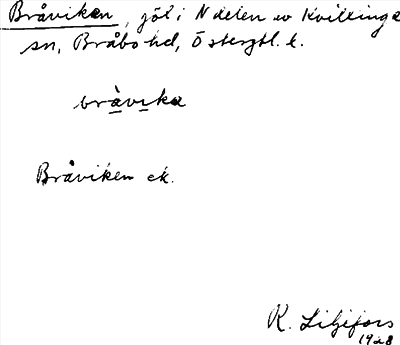 Bråviken, göl i N delen av Kvillinge
sn, Bråbo hd, Östergtl. l.
bråvika
Bråviken ek.
R. Liljefors
1928